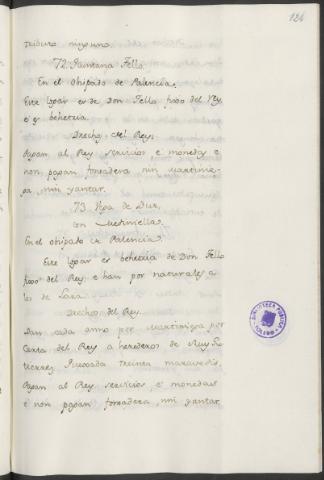 124
tributo ninguno.
72. Quintana Fello.
En el obispado de Palencia.
Este logar es de Don Tello fijo del Rey,
é es behetria.
Derechos del Rey.
Pagan al Rey servicios e monedas e
non pagan fonsadera nin martinie-
ga, nin yantar.
73 de
con
En el obispado de Palencia.
Este logar es behetria de Don Tello
fijo del Rey e han por naturales a
los de Lara.
Derechos del Rey.
Dan cada anno por martiniega por
Carta del Rey a herederos de Ruy Gu
tierrez Quexada treinta maravedis.
Pagan al Rey servicios e monedas
e non pagan fonsadera, nin yantar.
BIBLIOTECA PUBLICA
TOLEDO